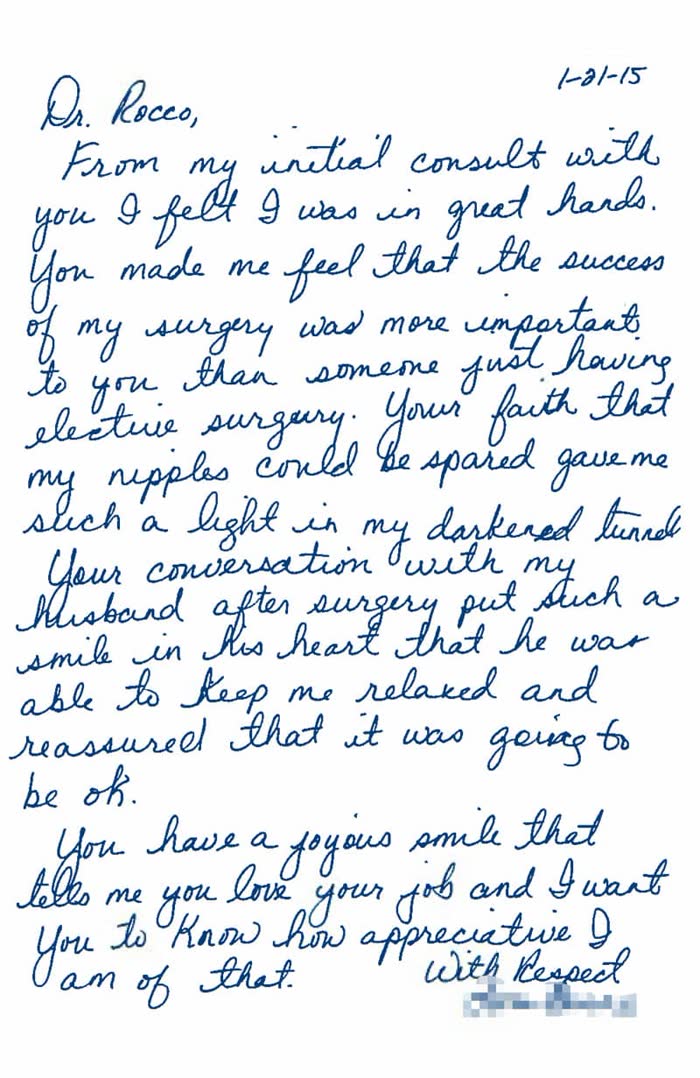 1-21-15
Dr. Rocco,
From my initial consult with
you I felt I was in great hands.
You made me feel that the success
of my surgery was more important
to you than someone just having
elective surgery. Your faith that
my nipples could be spared gave me
such a light in my darkened tunnel
Your conversation with my
husband after surgery put such a
smile in his heart that he was
able to keep me relaxed and
reassured that it was going to
be ok.
You have a joyous smile that
tells me you love your job and I want
you to know how appreciative I
am of that.
With Respect